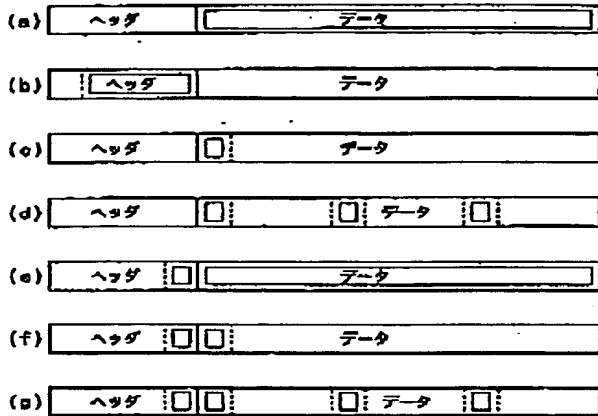 (a) ヘッダ データ
(b) ヘッダ データ
(c) ヘッダ データ
(d) ヘッダ データ
(e) ヘッダ データ
(f) ヘッダ データ
(g) ヘッダ データ